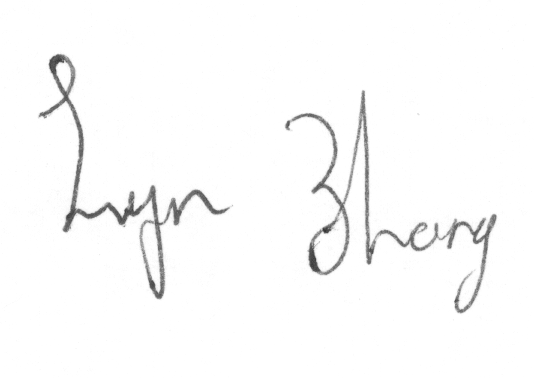 Lyn Zhang